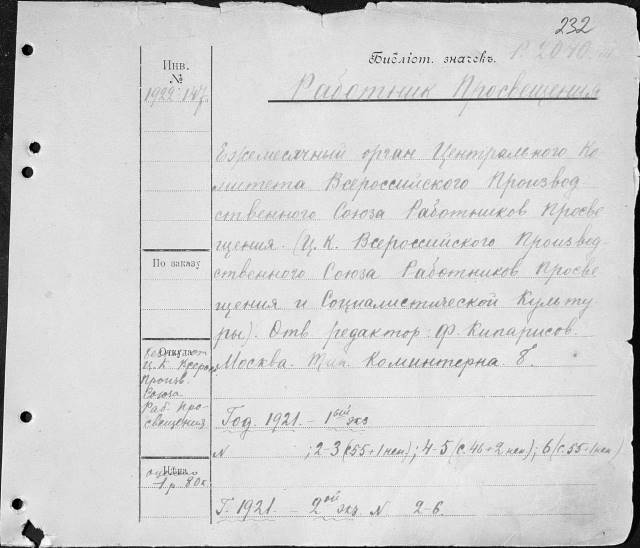 232
Библіот. значекъ. Р. 2040.
Инв.
№
1922:147.
Работник Просвещения
Ежемесячный орган Центрального Ко
митета Всероссийского Производ
ственного Союза Работников Просве
щения. (Ц. К. Всероссийского Производ-
ственного Союза Работников Просве
щения и Социалистической Культу
ры). Отв. редактор: Ф. Кипарисов.
Москва. Тип. Коминтерна Б.
По заказу
Откуда
Ц. К. Всеросс.
Произв.
Союза
Раб. Про-
свещения
Год. 1921. - 1ый экз
N ; 2-3 (с55+1нен); 4-5 (с. 46+2нен); 6 (с. 55+1нен)
Цѣна
1 р. 80к.
Г. 1921. - 2ой экз. N 2-6.